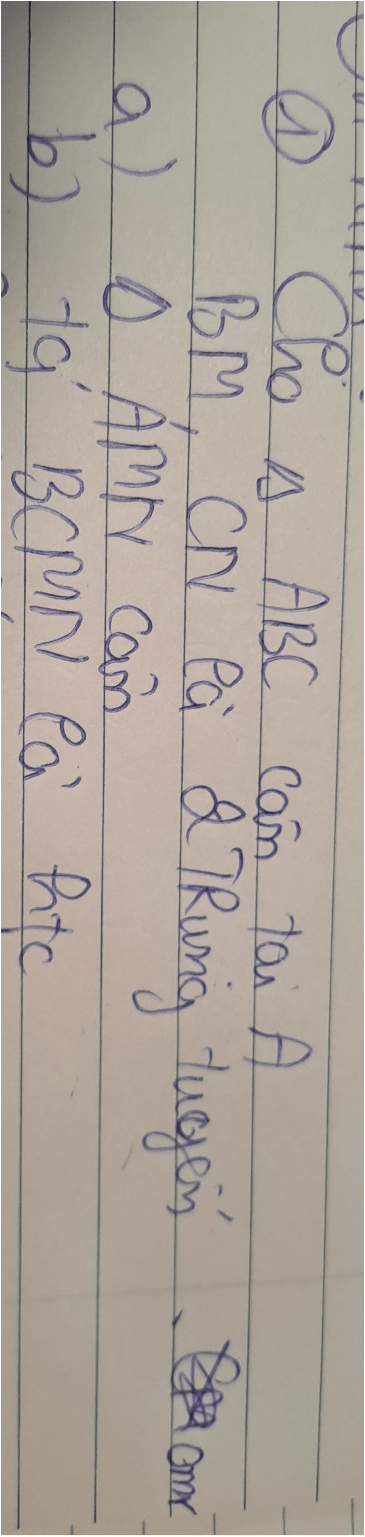 ① Cho Δ ABC cân tại A
BM, CN là 2 Trung tuyến. cmr
a) Δ AMN cân
b) tg' BCMN là htc